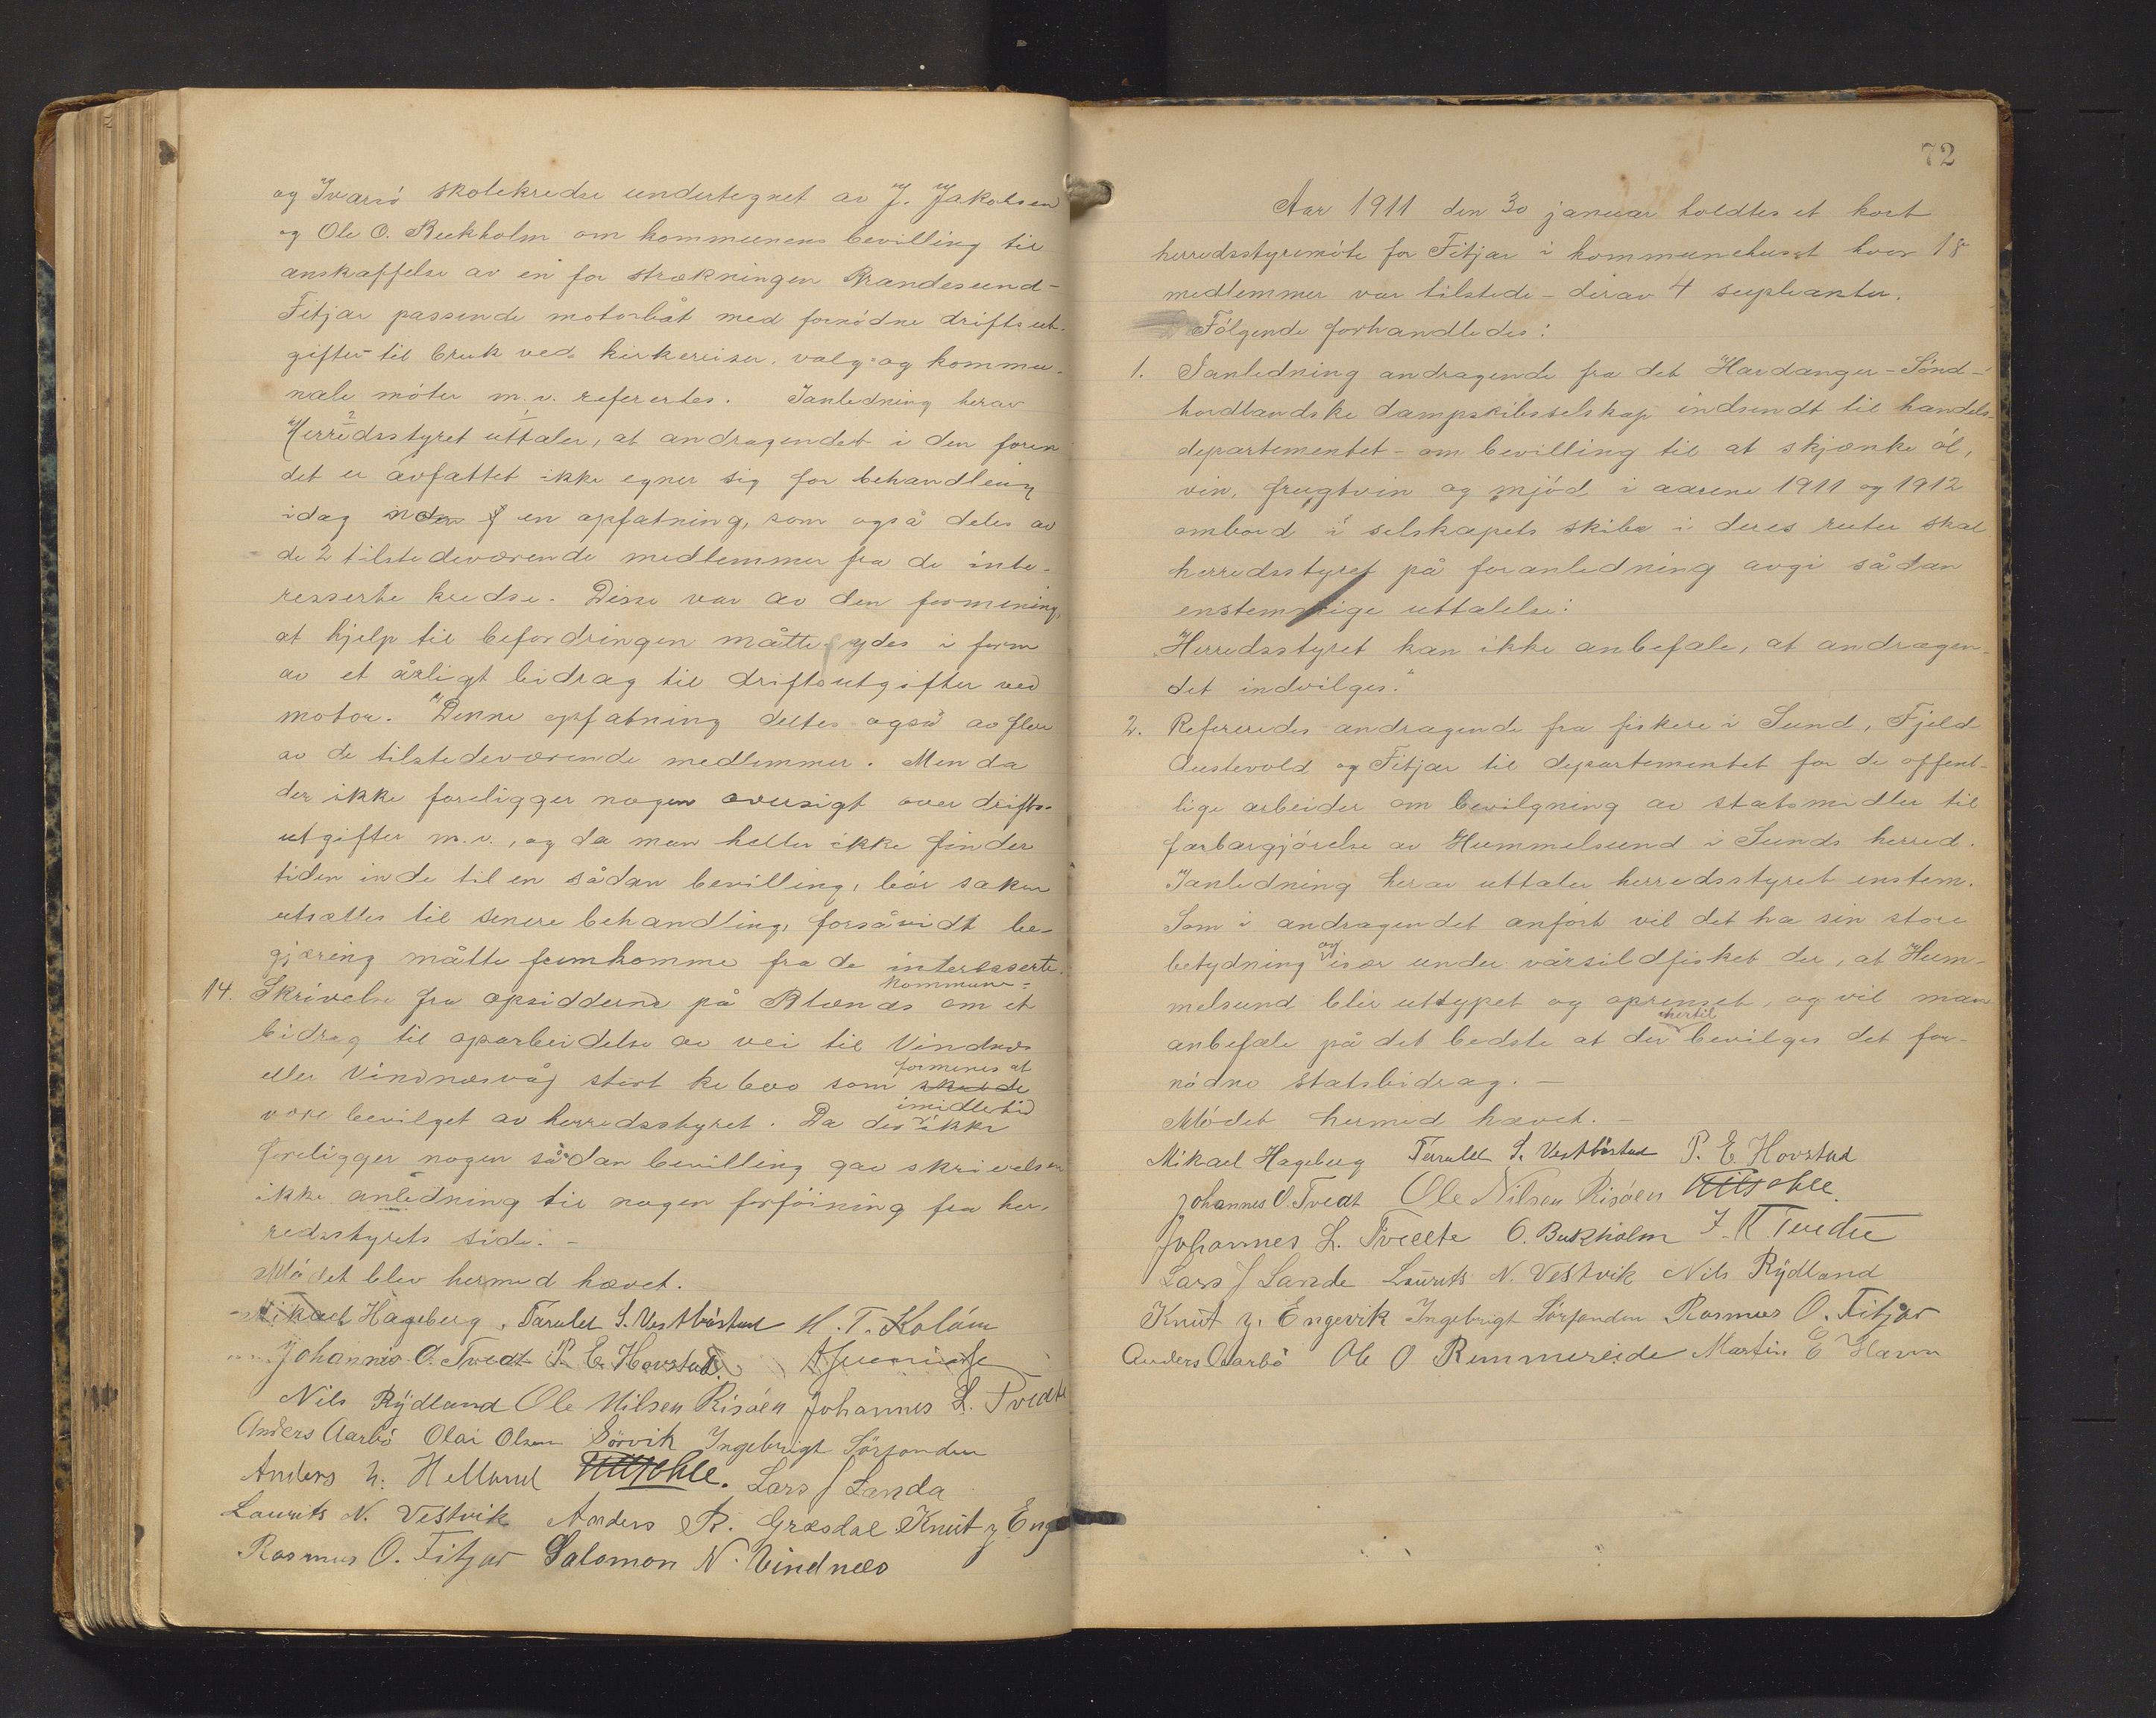 og Ivarsö skolekredse undertegnet av J. Jakobsen
og Ole O. Bukholm om kommunens bevilling til
anskaffelse av en for strækningen Brandesund-
Fitjar passende motorbåt med fornödne driftsut-
gifter til bruk ved kirkereiser, valg- og kommu-
nale möter m. v. refereertes. Ianledning herav
Herredsstyret uttaler, at andragendet i den form
det er avfattet ikke egner sig for behandling
idag en opfatning, som også deles av
de 2 tilstedeværende medlemmer fra de inte-
resserte kredse. Disse var av den formening,
at hjelp til befordringen måtte ydes i form
av et årligt bidrag til driftsutgifter ved
motor. Denne opfatning deltes også av flere
av de tilstedeværende medlemmer. Men da
der ikke foreligger nogen oversigt over drifts-
utgifter m.v., og da man heller ikke finder
tiden inde til en sådan bevilling, bör saken
utsættes til senere behandling, forsåvidt be-
gjæring måtte fremkomme fra de interesserte.
kommune-
14. Skrivelse fra opsidderne på Rlænds om et
bidrag til oparbeidelse av vei til Vindnes
formenes at
eller Vindnesvåg stort kr 600 som skulde
imidlertid
være bevilget av herredsstyret. Da der ikke
foreligger nogen sådan bevilling gav skrivelsen
ikke anledning til nogen forföining fra her-
redsstyrets side. -
Mödet blev hermed hævet.
Mikael Hageberg, Tarald S. Vestböstad M. T. Kolöen
Johannes O. Tvedt P. E. Hovstad
Nils Rydland Ole Nilsen Risöen Johannes L. Tvedte
Anders Aarbö Olai Olsen Sörvik Ingebrigt Sörfonden
Anders N. Helland Lars J Landa
Laurits N. Vestvik Anders R. Græsdal Knut J Eng
Rasmus O. Fitjar Salomon N. Vindnes
72
Aar 1911 den 30 januar holdtes et kort
herredsstyremöte for Fitjar i kommunehuset hvor 18
medlemmer var tilstede - derav 4 supleanter.
Fölgende forhandledes:
1. Ianledning andragende fra det Hardanger-Sönd-
hordlandske dampskibsselskap indsendt til handels-
departementet - om bevilling til at skjænke öl,
vin, frugtvin og mjöd i aarene 1911 og 1912
ombord i selskapets skibe i deres ruter skal
herredsstyret på foranledning avgi sådan
enstemmige uttalelse:
„Herredsstyret kan ikke anbefale, at andragen-
det indvilges."
2. Refereredes andragende fra fiskere i Sund, Fjeld
Austevold og Fitjar til departementet for de offent-
lige arbeider om bevilgning av statsmidler til
farbargjörelse av Hummelsund i Sunds herred.
Ianledning herav uttaler herredsstyret enstem.
Som i andragendet anfört vil det ha sin store
betydning og især under vårsildfisket der, at Hum-
melsund blir uttypet og oprenset, og vil man
hertil
anbefale på det bedste at der bevilges det for-
nödne statsbidrag. -
Mödet hermed hævet. -
Mikael Hageberg Tarald S. Vestböstad P. E. Hovstad
Johannes O. Tvedt Ole Nilsen Risöen
Johannes L. Tveete O. Bukholm
Lars J Lande Laurits N. Vestvik Nils Rydland
Knut J. Engevik Ingebrigt Sörfonden Rasmus O. Fitjar
Anders Aarbö Ole O Rimmereide Martin E Havn